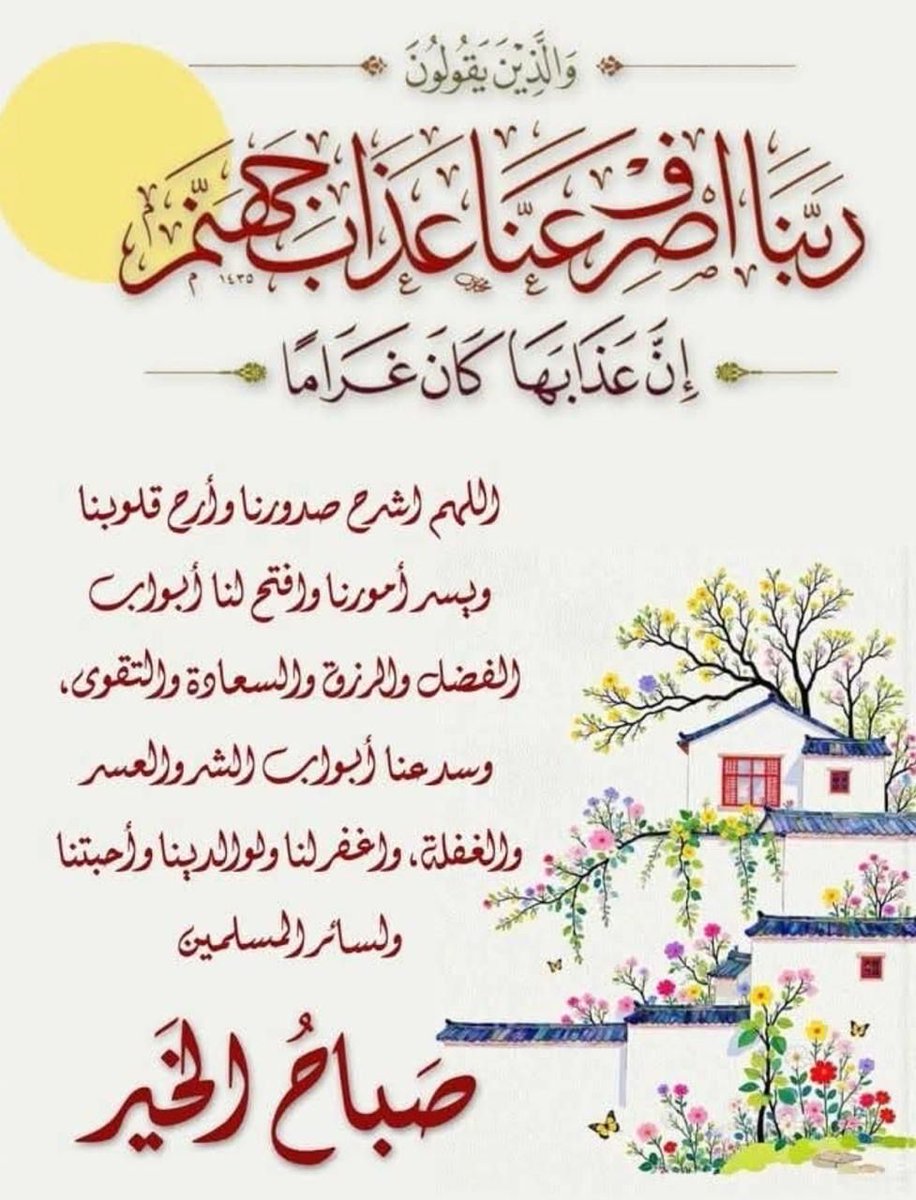 وَالَّذِيْنَ يَقُولُونَ
رَبَّنَا اصْرِفْ عَنَّا عَذَابَ جَهَنَّمَ
١٤٣٥
إِنَّ عَذَابَهَا كَانَ غَرَامًا
اللهم اشرح صدورنا وأرح قلوبنا
ويسر أمورنا وافتح لنا أبواب
الفضل والرزق والسعادة والتقوى،
وسد عنا أبواب الشر والعسر
والغفلة، واغفر لنا ولوالدينا وأحبتنا
ولسائر المسلمين
صَباحُ الخَير